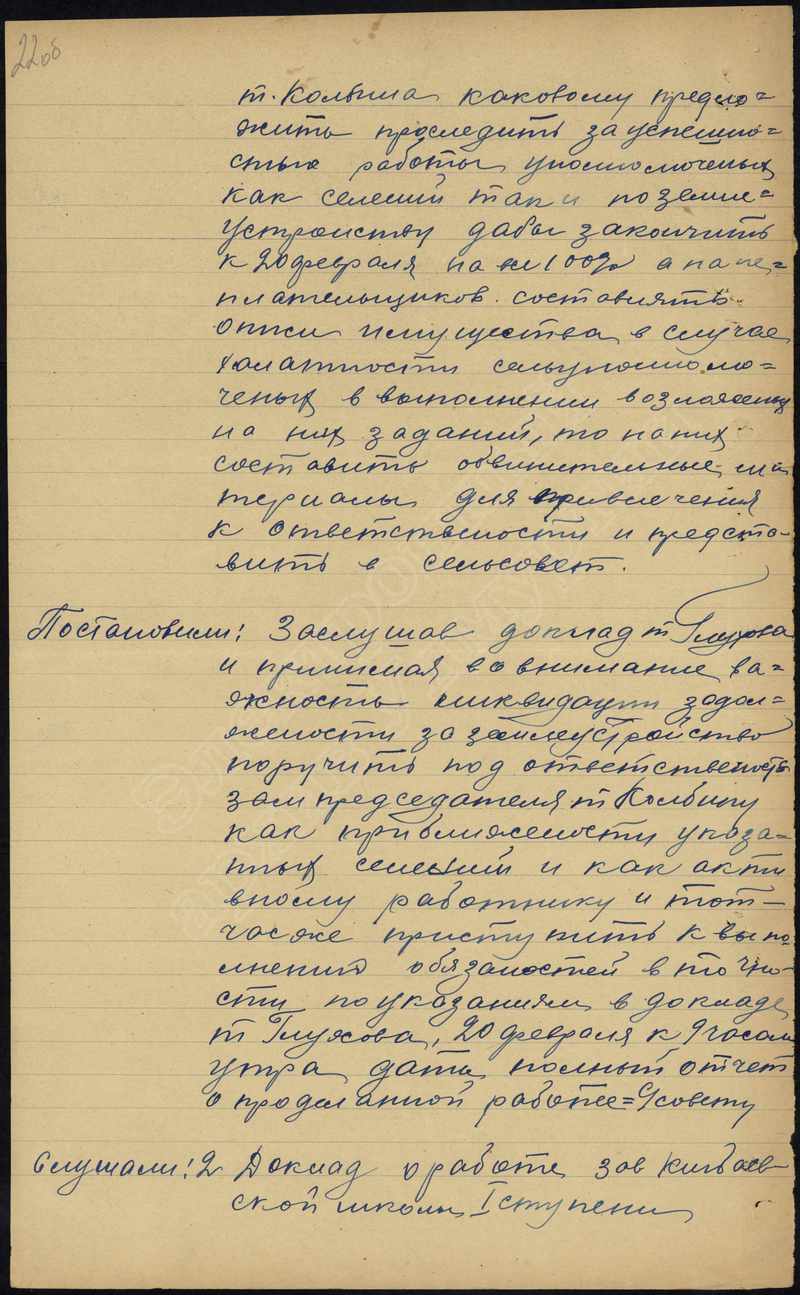 22об
т. Колбина каковому предло=
жить проследить за успешно=
стью работы уполномоченых
как селений так и по земле=
устройству дабы закончить
к 20 февраля на все 100% а на не=
плательщиков. составлять
описи имущества в случае
халатности сельуполномо=
ченых в выполнении возложеных
на них заданий, то на них
составить обвинительные ма
териалы для привлечения
к ответствености и предста-
вить в сельсовет.
Постановили: Заслушав доклад т Глухова
и принимая во внимание ва=
жность ликвидации задол=
жености за землеустройство
поручить под ответственость
зам председателя т Колбину
как приближеность указа=
ных селений и как акти
вному работнику и тот-
час же приступить к выпо
лнению обязаностей в точно-
сти по указаниям в докладе
т Глухова, 20 февраля к 9 часам
утра дать полный отчет
о проделанной работе = С/совету
Слушали: 2 Доклад о работе зав Кильаев-
ской школы I ступени